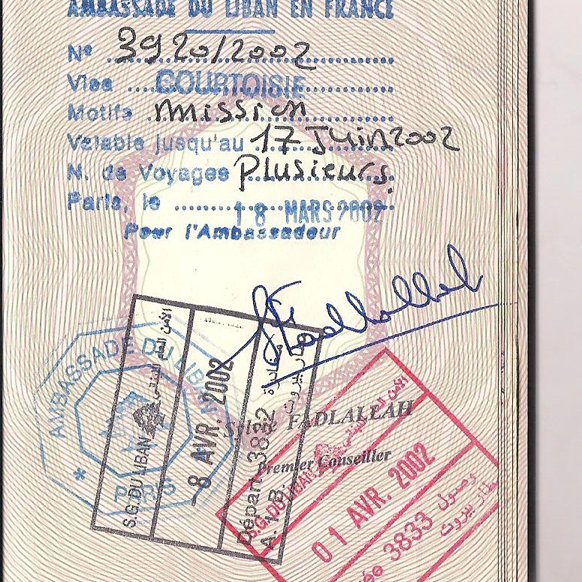 AMBASSADE DU LIBAN EN FRANCE
N° 3920/2002
Visa COURTOISIE
Motifs mission
Valable jusqu'au 17 Juin 2002
N. de Voyages Plusieurs.
Paris, le 18 MARS 2002
Pour l'Ambassadeur
AMBASSADE DU LIBAN
PARIS
FADLALLAH
Premier Conseiller
الأمن العام اللبناني
S.G. DU LIBAN
- 8 AVR. 2002
Départ 3832
A.I.B.
مغادرة
مطار بيروت
الأمن العام اللبناني
S.G. DU LIBAN
01 AVR. 2002
3833
وصول
مطار بيروت